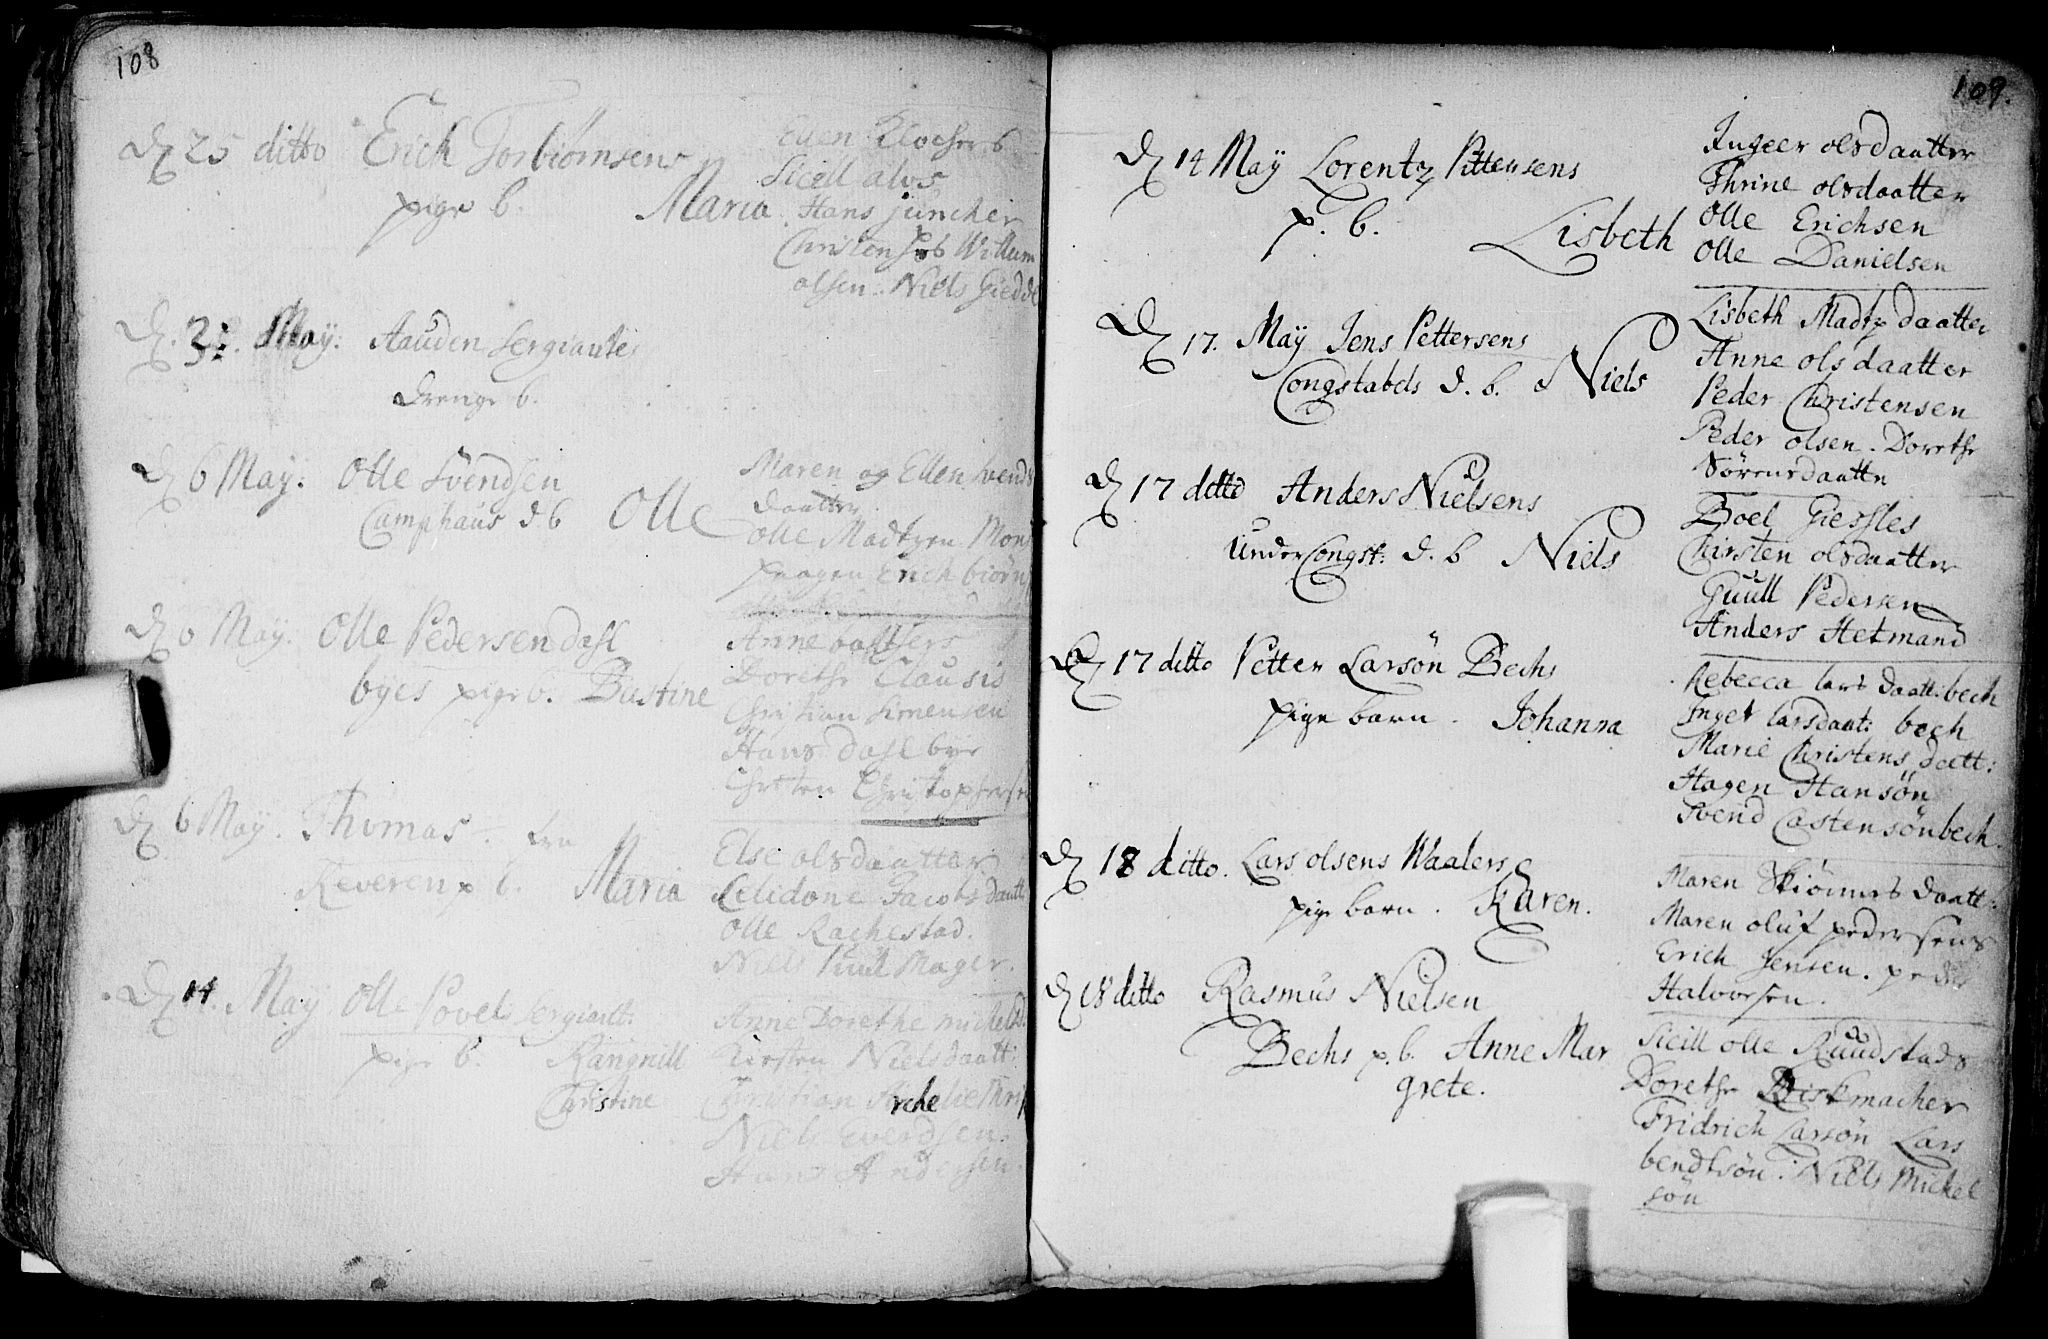 108
D 25 ditto Erich Torbiørnsens
pige b. Maria
Even Klochers
Sicill alvs
Hans juncher
Christensens Willum
olsen. Niels Giedde
D. 3. May: Aauden sergiantes
drenge b.
D 6 May. Olle Svendsen
Camphaus d b Olle
Maren og Ellen svends
daatter
olle Madtzen Mon
Erich biørn
D 6 May. Olle Pedersen dahl
byes pige b. Bastine
Anne baltsers
Dorethe Clausis
Christian simensen
Hans dahl bye
Christen Christophersen
D 6 May. Thomas
Reveren p b. Maria
Else olsdaatter
Celidone Jacobs daatt
olle Rachestad.
Niels Puul Mager.
D 14. May Olle Povels sergiantt:
pige b. Rangnill
Christine
Anne Dorethe michels d.
Kirsten Niels daatt:
Christian
Niels Everdsen.
Hans Andersen.
109.
D 14 May Lorentz Pittersens
p. b. Lisbeth
Ingeer olsdaatter
Thrine olsdaatter
olle Erichsen
olle Danielsen
D 17. May Jens Pettersens
Congstabels d. b. Niels
Lisbeth Madtz daatter
Anne olsdaatter
Peder Christensen
Peder olsen. Dorethe
Sørensdaatte
D 17 ditto Anders Nielsens
Under Congst: d. b Niels
Boel Giesles
Chirsten olsdaatter
Guull Pedersen
Anders Hetmand
D 17 ditto Petter Larsøn Bechs
pige barn. Johanna
Rebecca lars daatt: bech
Inger larsdaat: bech
Marie Christens datt:
Hagen Hansøn
Svend Castensøn bech.
D 18 ditto. Lars olsens Waalers
pige barn. Karen.
Maren Skiønners daatt:
Maren oluf pedersens
Erich Jensen. peder
Halvorsen.
D 18 ditto Rasmus Nielsen
Bechs p. b. Anne Mar
grete.
Sicill olle Ruudstads
Dorethe Diskmacher
Fridrich Larsøn Lars
bendtsøn. Niels Mickel
søn